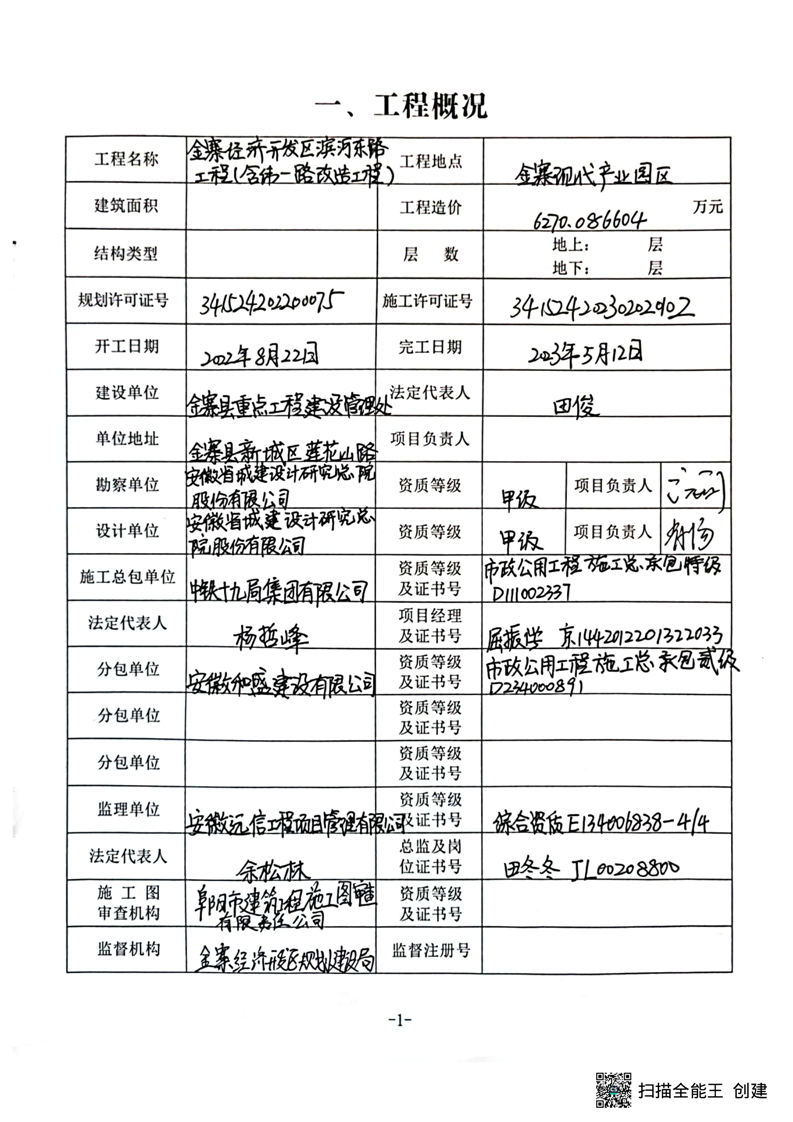 一、工程概况
工程名称 金寨经济开发区滨河东路
工程(含纬一路改造工程) 工程地点 金寨现代产业园区
建筑面积 工程造价 6270.086604 万元
结构类型 层 数 地上: 层
地下: 层
规划许可证号 341524202200075 施工许可证号 3415242023020290Z
开工日期 2022年8月22日 完工日期 2023年5月12日
建设单位 金寨县重点工程建设管理处 法定代表人 田俊
单位地址 金寨县新城区莲花山路 项目负责人
勘察单位 安徽省城建设计研究总院
股份有限公司 资质等级 甲级 项目负责人
设计单位 安徽省城建设计研究总
院股份有限公司 资质等级 甲级 项目负责人
施工总包单位 中铁十九局集团有限公司 资质等级
及证书号 市政公用工程施工总承包特级
D111002337
法定代表人 杨哲峰 项目经理
及证书号 屈振学 京1442012201322033
分包单位 安徽和盛建设有限公司 资质等级
及证书号 市政公用工程施工总承包贰级
D234000891
分包单位 资质等级
及证书号
分包单位 资质等级
及证书号
监理单位 安徽远信工程项目管理有限公司 资质等级
及证书号 综合资质E134006838-4/4
法定代表人 余松林 总监及岗
位证书号 田冬冬 JL00208800
施 工 图
审查机构 阜阳市建筑工程施工图审查
有限责任公司 资质等级
及证书号
监督机构 金寨经济开发区规划建设局 监督注册号
-1-
扫描全能王 创建